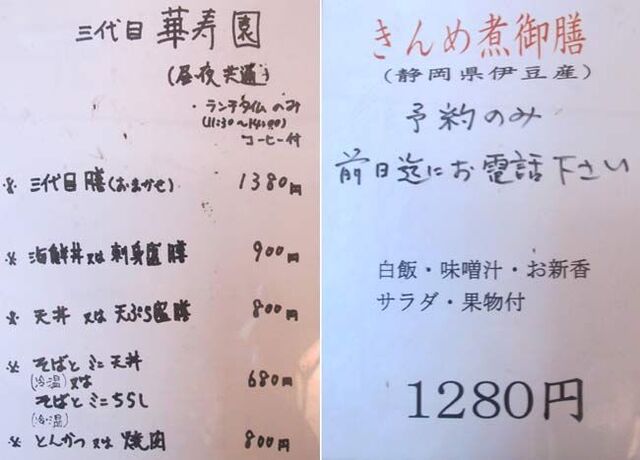 三代目 華寿園
(昼夜共通)
・ランチタイムのみ
(11:30〜14:00)
コーヒー付
※ 三代目膳(おまかせ) 1380円
※ 海鮮丼又は刺身膳 900円
※ 天丼 又は 天ぷら膳 800円
※ そばとミニ天丼
(冷温) 又は 680円
そばとミニちらし
(冷温)
※ とんかつ又は焼肉 800円
きんめ煮御膳
(静岡県伊豆産)
予約のみ
前日迄にお電話下さい
白飯・味噌汁・お新香
サラダ・果物付
1280円